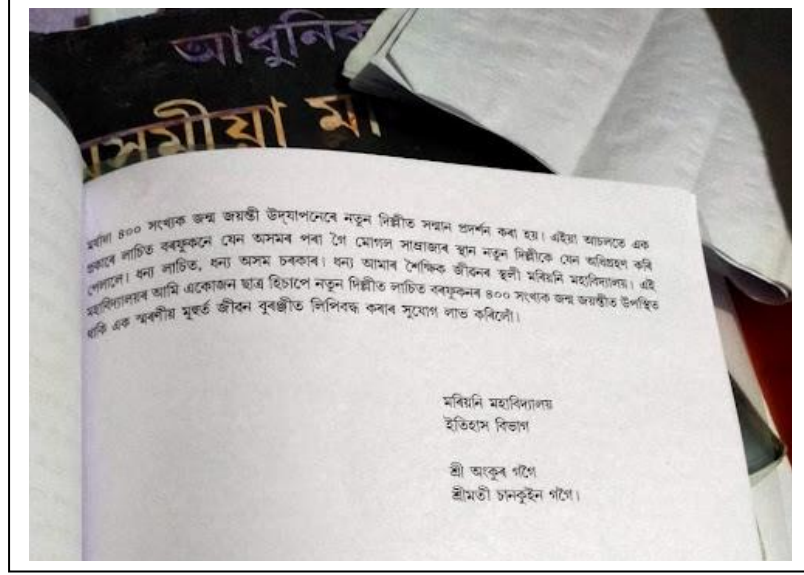 আধুনিক
অসমীয়া মা
মৰ্যাদা ৪০০ সংখ্যক জন্ম জয়ন্তী উদ্‌যাপনেৰে নতুন দিল্লীত সন্মান প্ৰদৰ্শন কৰা হয়। এইয়া আচলতে এক
প্ৰকাৰে লাচিত বৰফুকনে যেন অসমৰ পৰা গৈ মোগল সাম্ৰাজ্যৰ স্থান নতুন দিল্লীকে যেন অধিগ্ৰহণ কৰি
পেলালে। ধন্য লাচিত, ধন্য অসম চৰকাৰ। ধন্য আমাৰ শৈক্ষিক জীৱনৰ স্থলী মৰিয়নি মহাবিদ্যালয়। এই
মহাবিদ্যালয়ৰ আমি একোজন ছাত্ৰ হিচাপে নতুন দিল্লীত লাচিত বৰফুকনৰ ৪০০ সংখ্যক জন্ম জয়ন্তীত উপস্থিত
থাকি এক স্মৰণীয় মূহুৰ্ত জীৱন বুৰঞ্জীত লিপিবদ্ধ কৰাৰ সুযোগ লাভ কৰিলোঁ।
মৰিয়নি মহাবিদ্যালয়
ইতিহাস বিভাগ
শ্ৰী অংকুৰ গগৈ
শ্ৰীমতী চানকুইন গগৈ।